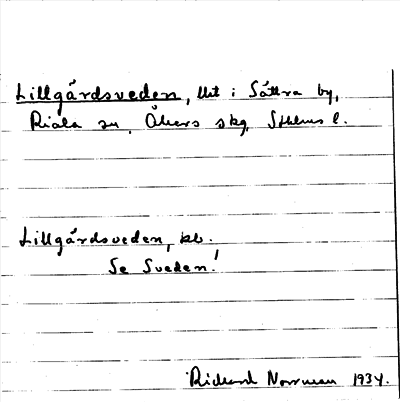 Lillgårdsveden, lht i Sättra by,
Riala sn, Åkers skg, Sthlms l.
Lillgårdsveden, kb.
Se Sveden!
Rickard Norrman 1934.